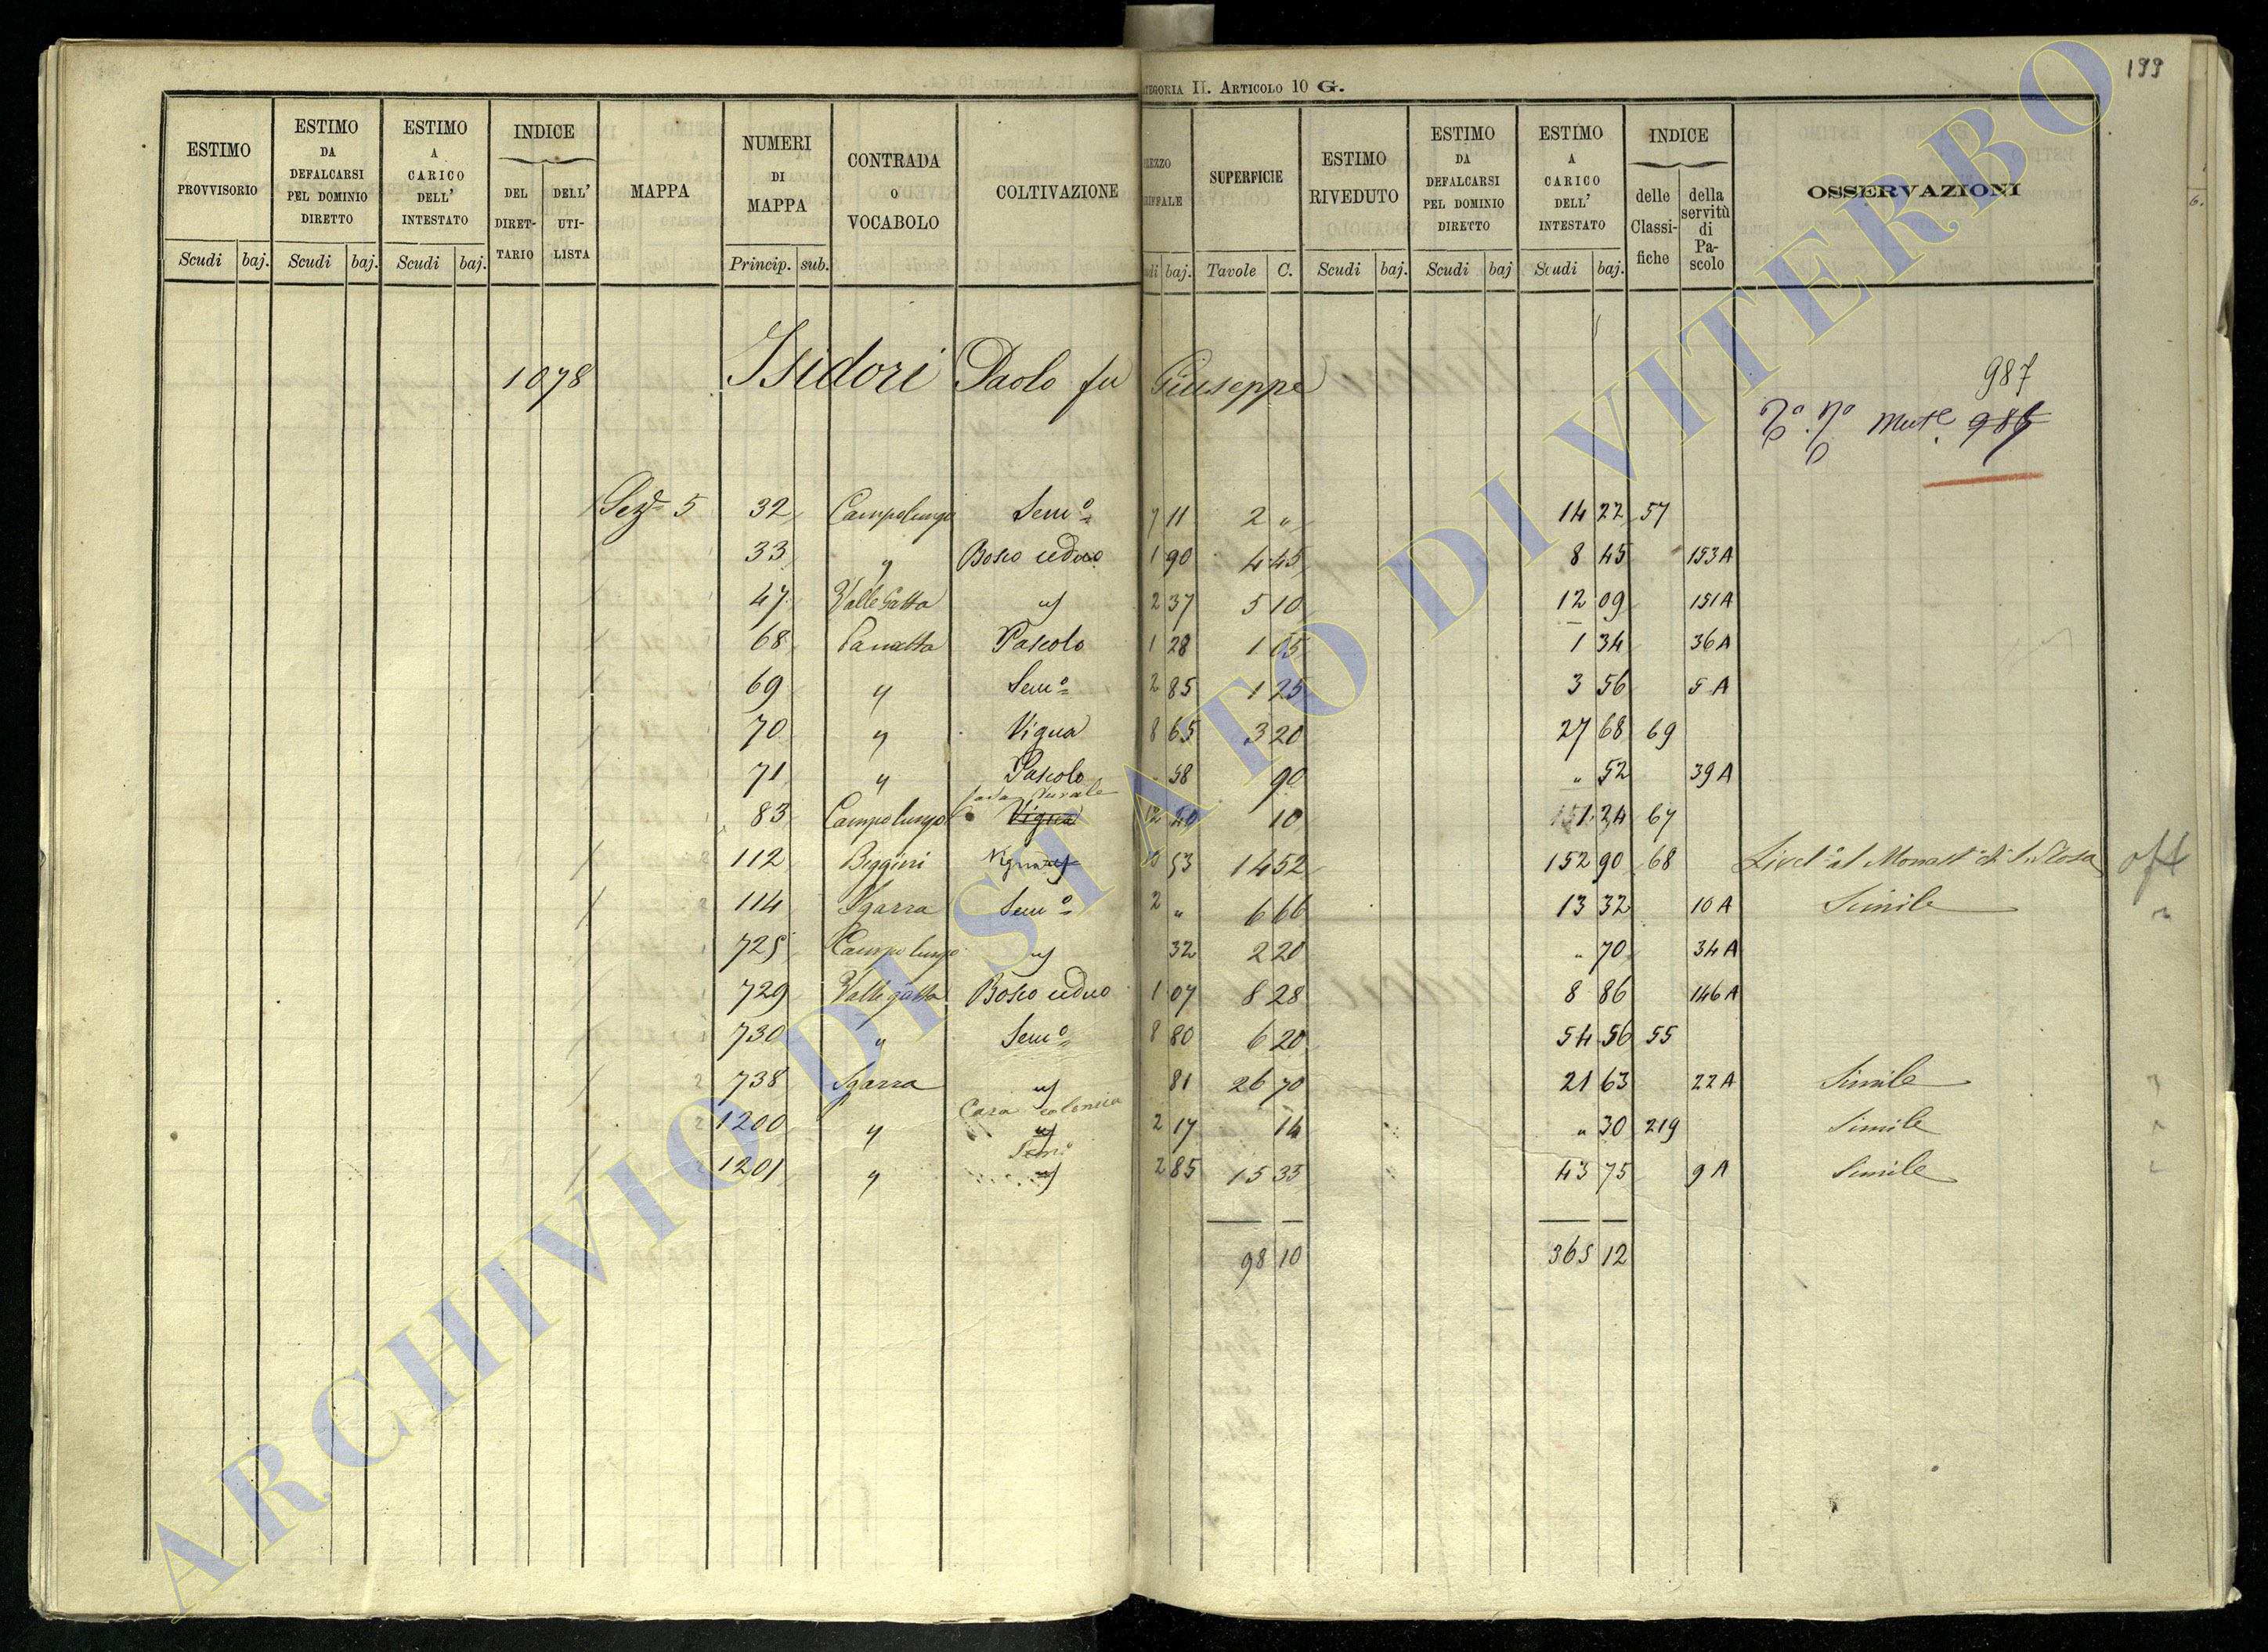 199
CATEGORIA II. ARTICOLO 10 G.
ESTIMO PROVVISORIO Scudi baj.
ESTIMO DA DEFALCARSI PEL DOMINIO DIRETTO Scudi baj.
ESTIMO A CARICO DELL' INTESTATO Scudi baj.
INDICE DEL DIRET-TARIO DELL' UTI-LISTA
MAPPA
NUMERI DI MAPPA Princip. sub.
CONTRADA O VOCABOLO
COLTIVAZIONE
SUPERFICIE Tavole C.
ESTIMO RIVEDUTO Scudi baj.
ESTIMO DA DEFALCARSI PEL DOMINIO DIRETTO Scudi baj
ESTIMO A CARICO DELL' INTESTATO Scudi baj.
INDICE delle Classi-fiche della servitù di Pa-scolo
OSSERVAZIONI
1078 Isidori Paolo fu Giuseppe
987
Mut.e 986
Sez.e 5 32 Campolungo Sem.o 7 11 2 " 14 22 57
33 " Bosco ceduo 1 90 4 45 8 45 153 A
47 Valle Gatta " 2 37 5 10 12 09 151 A
68 Pascolo 1 28 1 05 1 34 36 A
69 " Sem.o 2 85 1 25 3 56 5 A
70 " Vigna 8 65 3 20 27 68 69
71 " Pascolo " 58 90 " 52 39 A
Casa rurale
83 Campolungo Vigna 12 40 10 1 24 67
112 Vigna 10 53 14 52 152 90 68 Livel.o al Monast.o di S. Rosa
114 Sgarra Sem.o 2 " 6 66 13 32 10 A Simile
725 Campolungo " 32 2 20 " 70 34 A
729 Valle gatta Bosco ceduo 1 07 8 28 8 86 146 A
730 " Sem.o 8 80 6 20 54 56 55
738 Sgarra " 81 26 70 21 63 22 A Simile
Casa colonica
1200 " " 2 17 14 " 30 219 Simile
Sem.o
1201 " " 2 85 15 35 43 75 9 A Simile
98 10 365 12
ARCHIVIO DI STATO DI VITERBO